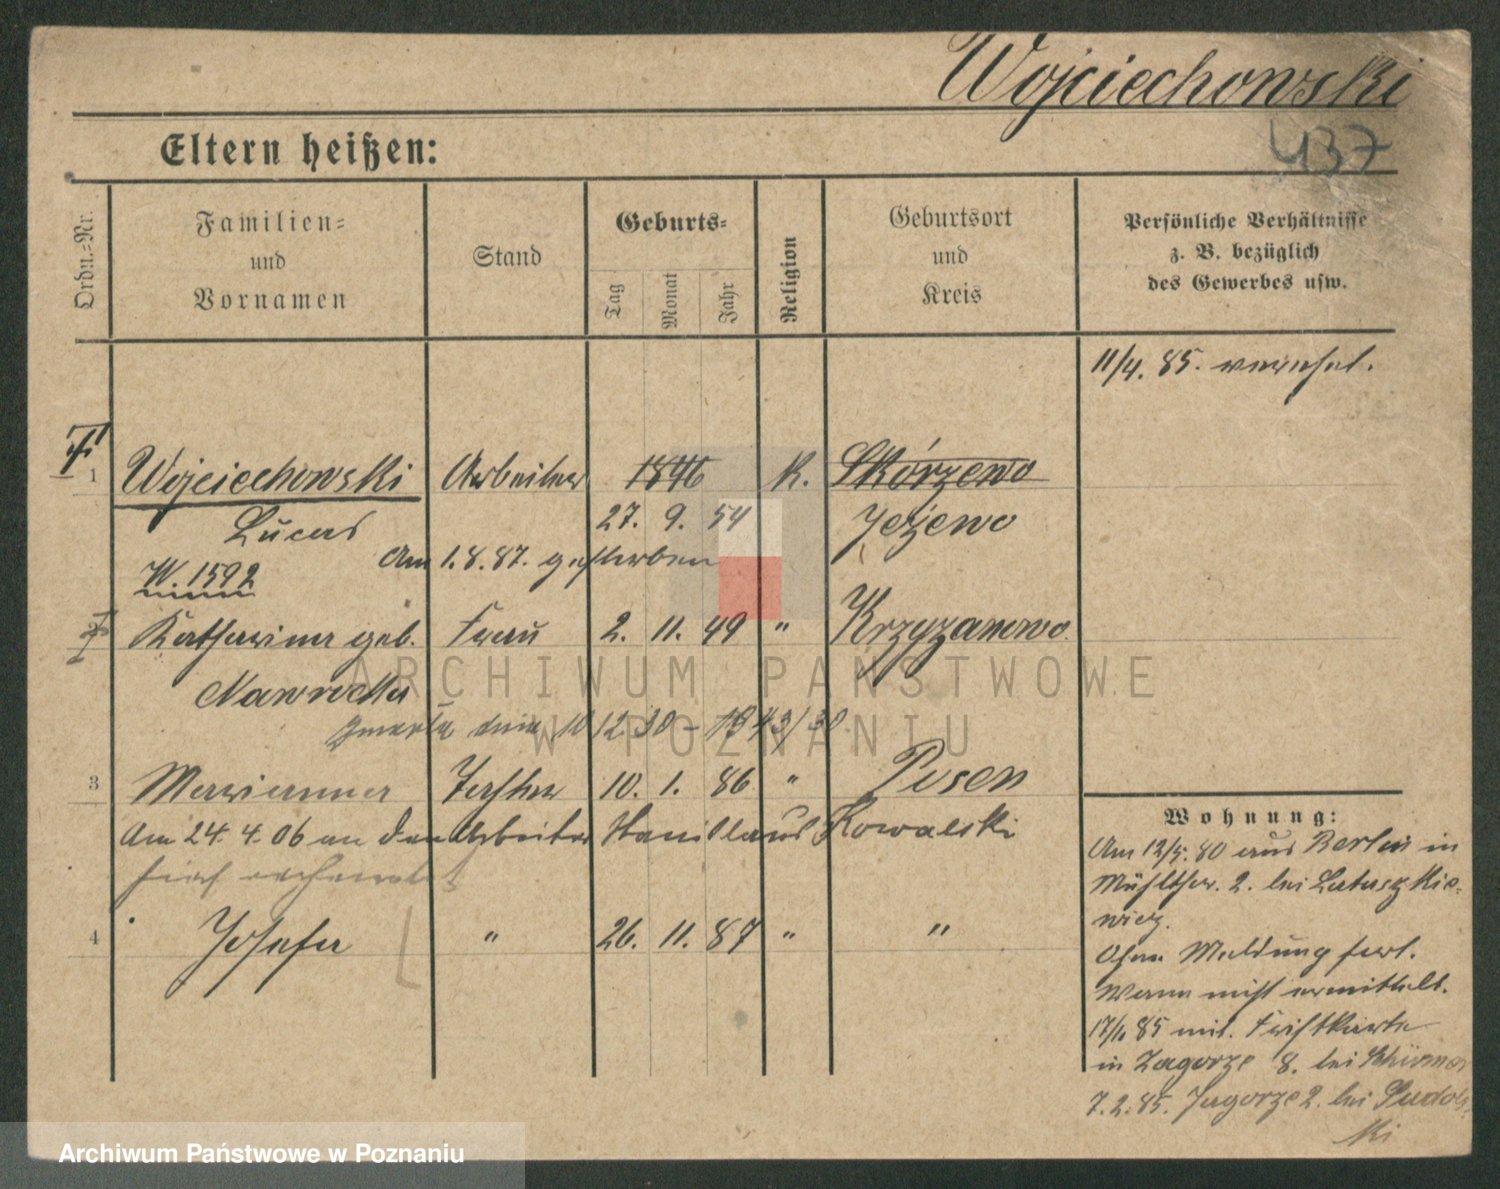 Wojciechowski
437
Eltern heißen:
Ordn.-Nr.
Familien-
und
Vornamen
Stand
Geburts-
Tag
Monat
Jahr
Religion
Geburtsort
und
Kreis
Persönliche Verhältnisse
z. B. bezüglich
des Gewerbes usw.
11/4. 85. verehel.
1 Wojciechowski Arbeiter 1846 K. Skórzewo
Lucas 27. 9. 54 Jeżewo
Am 1.8.87. gestorben
W. 1592
2 Katharina geb. Frau 2. 11. 49 " Krzyżanowo
Nawrocka
zmarła dnia 10 12.30 - 1343/30
3 Marianna Tochter 10. 1. 86 " Posen
Am 24.4.06 an den Arbeiter Stanislaus Kowalski
hier verheiratet
4 Josefa " 26. 11. 87 " "
Wohnung:
Am 12/5. 80 aus Berlin in
Mühlthor. 2. bei Lataszkie-
wicz.
Ohne Meldung fort.
Wann nicht ermittelt.
85 mit. Fristkarte
in Zagorze 8. bei
7.2.85. Zagorze 2. bei
ki
ARCHIWUM PAŃSTWOWE
W POZNANIU
Archiwum Państwowe w Poznaniu